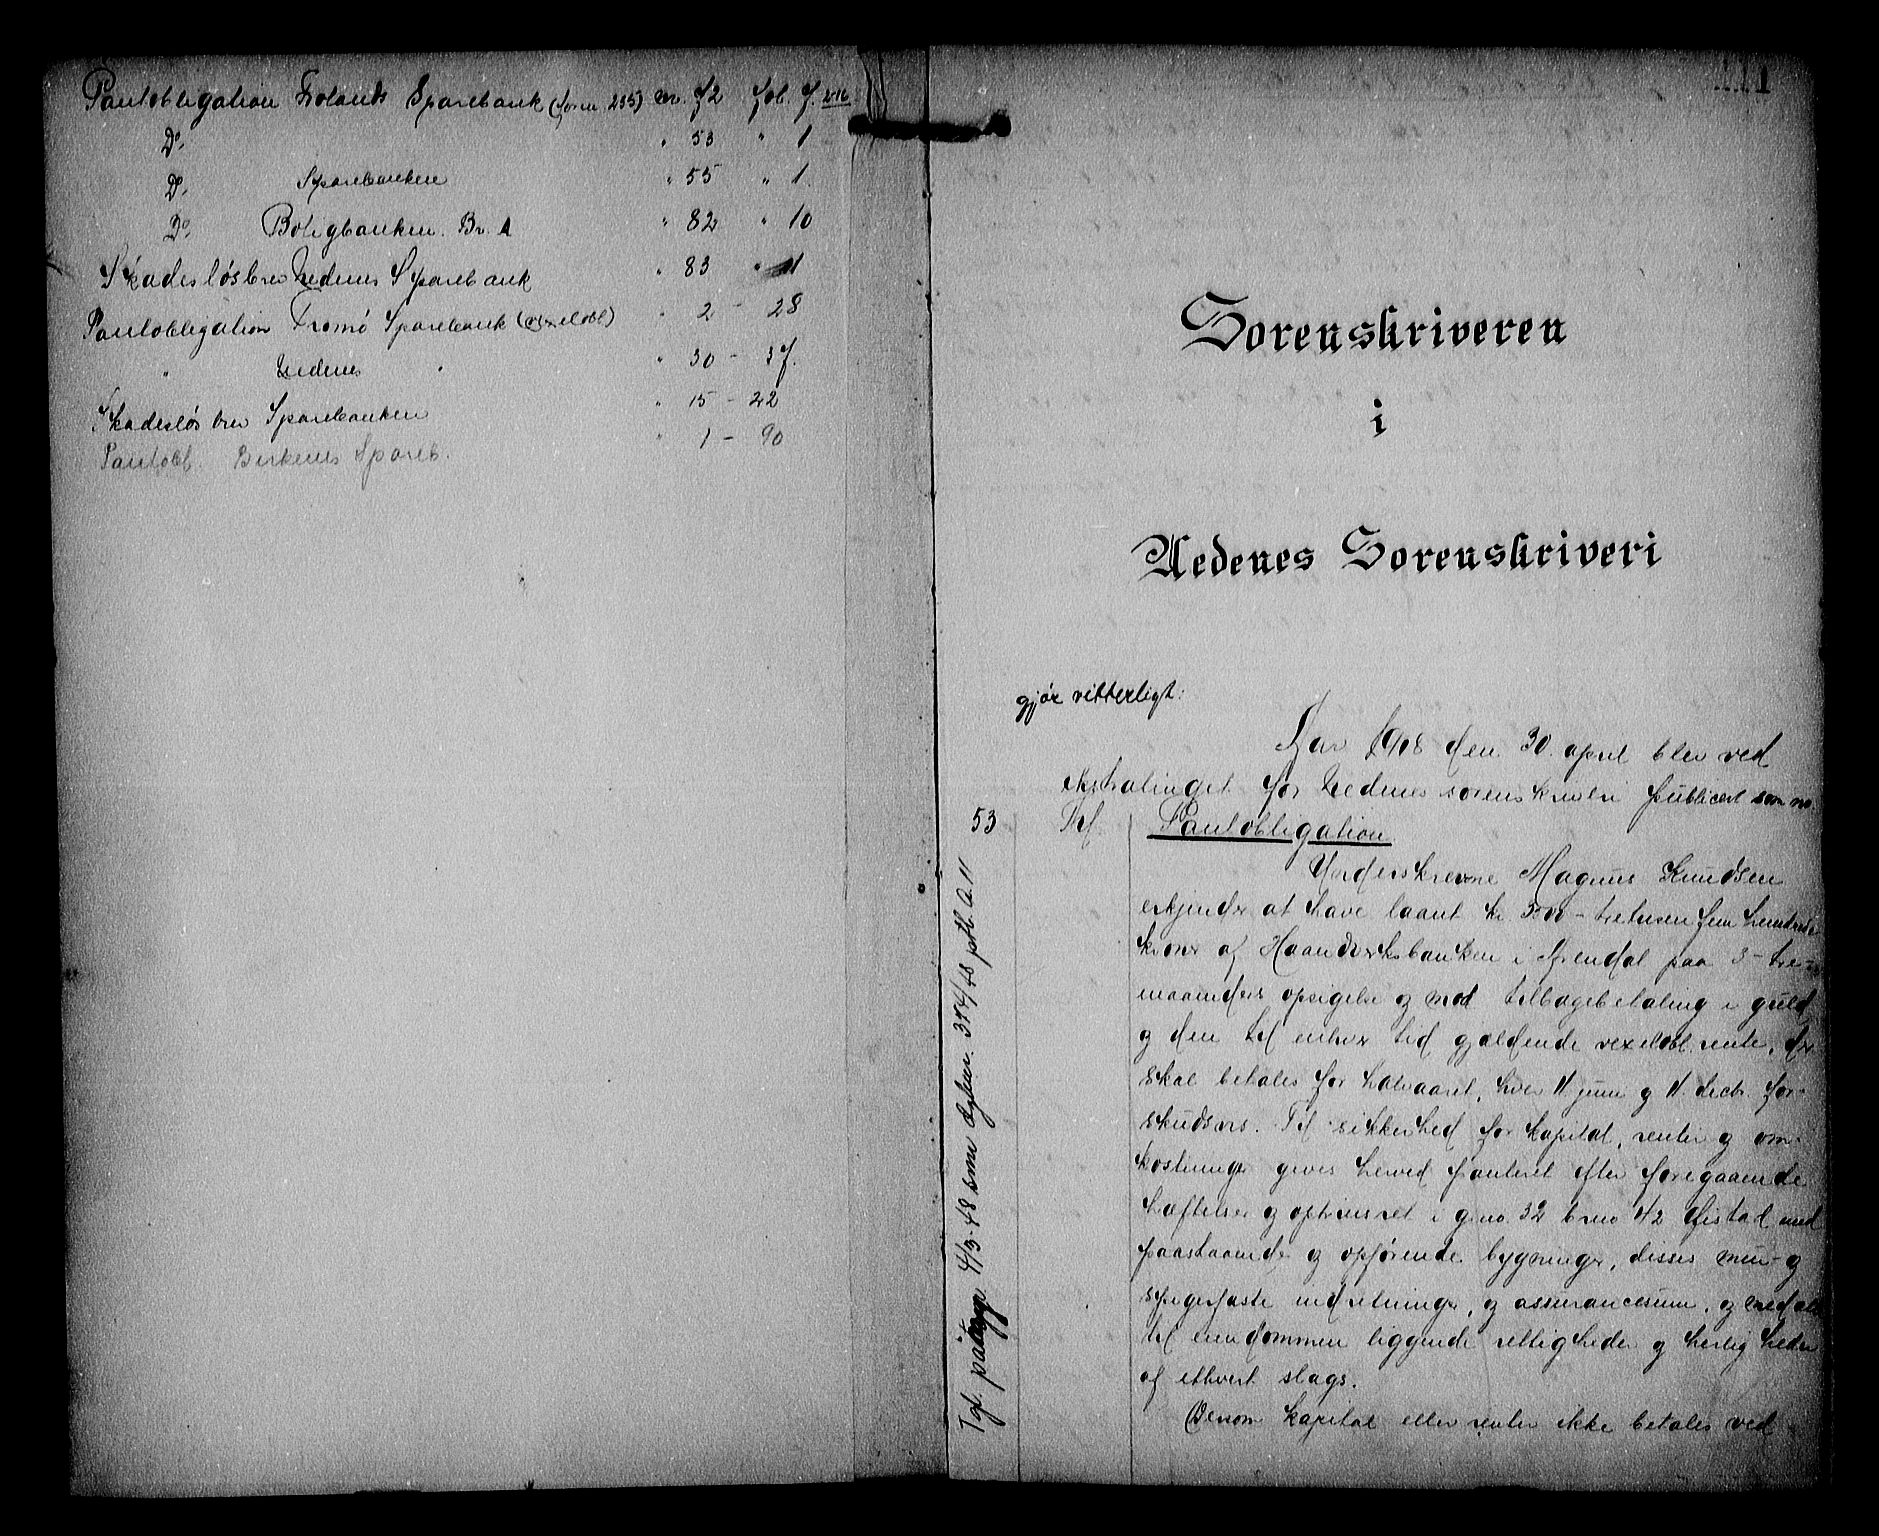 Pantobligation Frolands Sparebank (form. 255) nr. 72 fol. 7. 216
Do. " 53 " 1
Do. Sparebanken " 55 " 1.
Do. Boligbanken. Br. A " 82 " 10
Skadesløsbrev Nedenes Sparebank " 83 " 1
Pantobligation Tromø Sparebank (vexelobl) " 2 - 28
" Nedenes " " 30 - 37.
Skadesløsbrev Sparebanken " 15 - 42
Pantobl. Birkenes Spareb. " 1 - 90
1
Sorenskriveren
i
Nedenes Sorenskriveri
gjør vitterligt:
Aar 1908 den 30. april blev ved
extratinget for Nedenes sorenskriveri publicert som no.
53 Pantobligation
Underskrevne Magnus Knudsen
erkjender at have laant kr 3500 - tretusen fem hundrede
kroner af Haandverksbanken i Arendal paa 3 - tre -
maaneders opsigelse og mod tilbagebetaling i guld
og den til enhver tid gjældende vexelobl. rente, der
skal betales for halvaaret, hver 11 juni og 11. decbr. for-
skudsvis. Til sikkerhed for kapital, renter og om-
kostninger gives herved panteret efter foregaaende
hæftelser og optrinsret i gno. 32 bno 42 Øistad med
paastaaende og opførende bygninger, disses mur- og
spigerfaste indretninger, og assurancesum, og med alle
til eiendommen liggende rettigheder og herligheder
af ethvert slags.
Dersom kapital eller renter ikke betales ved
Tgl. påtegn 4/3-48 som dagbnr. 374/48 ptl. A.11